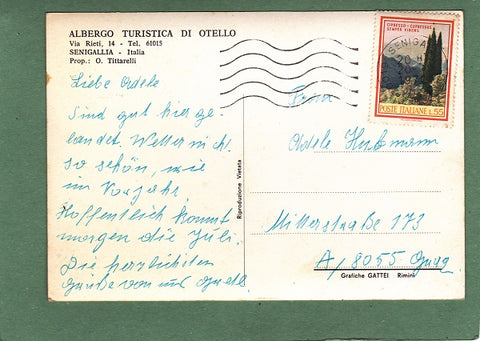 ALBERGO TURISTICA DI OTELLO
Via Rieti, 14 - Tel. 61015
SENIGALLIA - Italia
Prop.: O. Tittarelli
Liebe Adele
Sind gut hier ge-
landet. Wetter nicht
so schön, wie
im Vorjahr
Hoffentlich kommt
morgen die Juli.
Die herzlichsten
Grüße von uns
Riproduzione Vietata
CIPRESSO - CUPRESSUS
SEMPER VIRENS
POSTE ITALIANE L. 55
SENIGALLIA
Frau
Adele
Mitterstraße 173
A/8055 Graz
Grafiche GATTEI Rimini